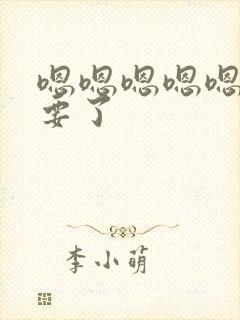 嗯嗯嗯嗯嗯
要了
李小萌